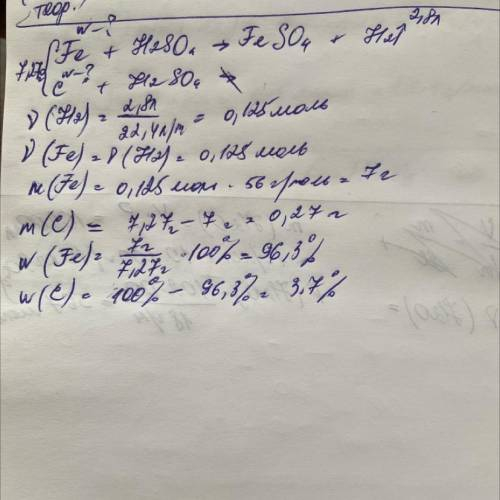 теор.
w-? 2,8л
7,27г { Fe + H2SO4 → FeSO4 + H2↑
w-?
C + H2SO4 ↛
ν(H2) = 2,8л / 22,4л/м = 0,125 моль
ν(Fe) = ν(H2) = 0,125 моль
m(Fe) = 0,125 мол · 56 г/моль = 7г
m(C) = 7,27г - 7г = 0,27г
w(Fe) = 7г / 7,27г · 100% = 96,3%
w(C) = 100% - 96,3% = 3,7%